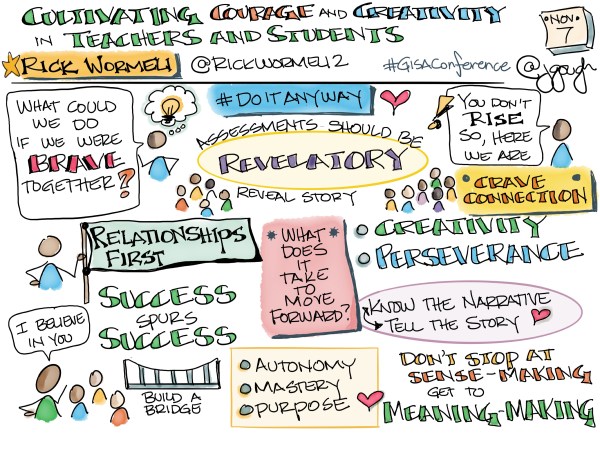 CULTIVATING COURAGE AND CREATIVITY
IN TEACHERS AND STUDENTS
NOV.
7
RICK WORMELI
@RICKWORMELI2
#GISACONFERENCE
@jgough
WHAT COULD
WE DO
IF WE WERE
BRAVE
TOGETHER?
#DOITANYWAY
ASSESSMENTS SHOULD BE
REVELATORY
REVEAL STORY
YOU DON'T
RISE
SO, HERE
WE ARE
CRAVE
CONNECTION
RELATIONSHIPS
FIRST
WHAT
DOES
IT
TAKE
TO
MOVE
FORWARD?
CREATIVITY
PERSEVERANCE
KNOW THE NARRATIVE
TELL THE STORY
SUCCESS
SPURS
SUCCESS
I BELIEVE
IN YOU
BUILD A
BRIDGE
AUTONOMY
MASTERY
PURPOSE
DON'T STOP AT
SENSE-MAKING
GET TO
MEANING-MAKING